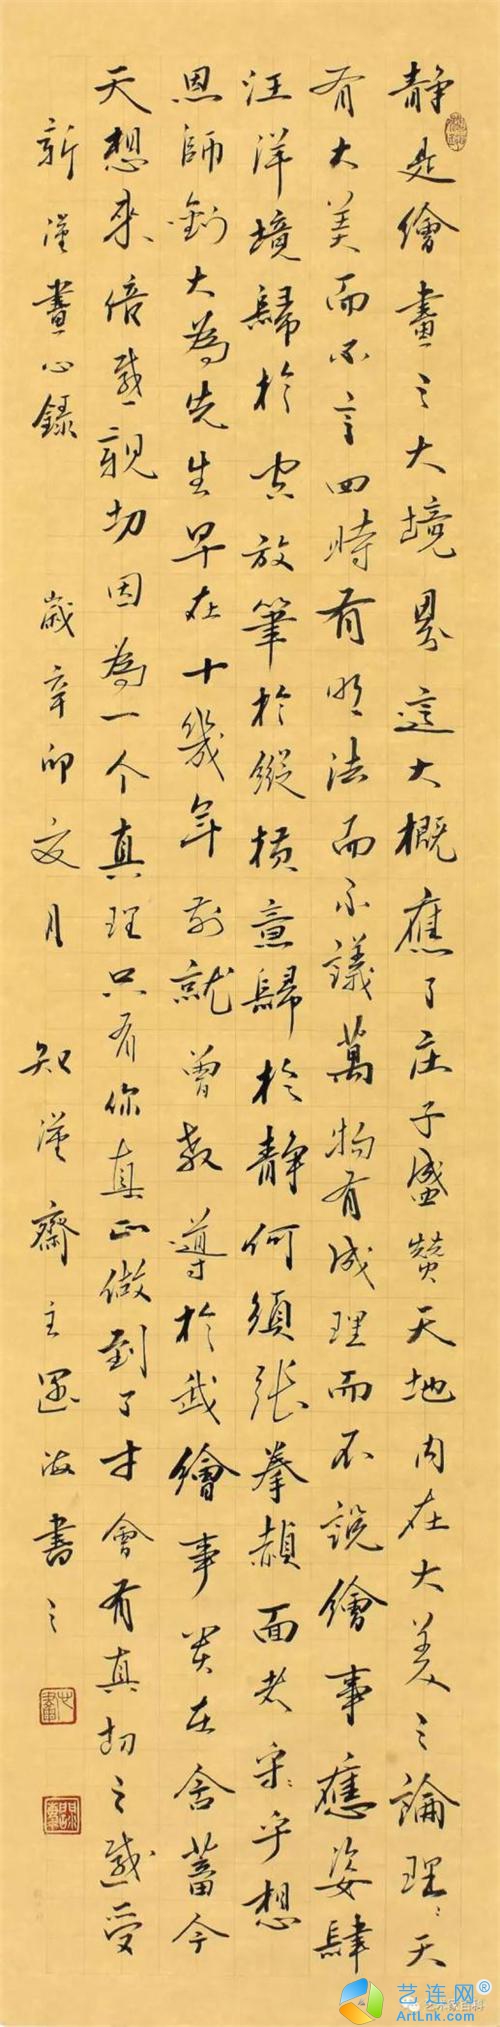 静是繪畫之大境界這大概應了庄子盛贊天地内在大美之論理天
有大美而不言四時有明法而不議萬物有成理而不說繪事應姿肆
汪洋境歸於放筆於縱横意歸於静何須張拳赬面乎想
恩師劉大為先生早在十幾年前就曾教導於我繪事貴在含蓄今
天想來倍感親切因為一个真理只有你真正做到了才會有真切之感受
新漢畫心錄 歲辛卯月 知漢齋主海書之
艺术家百科
艺连网
ArtLnk.com